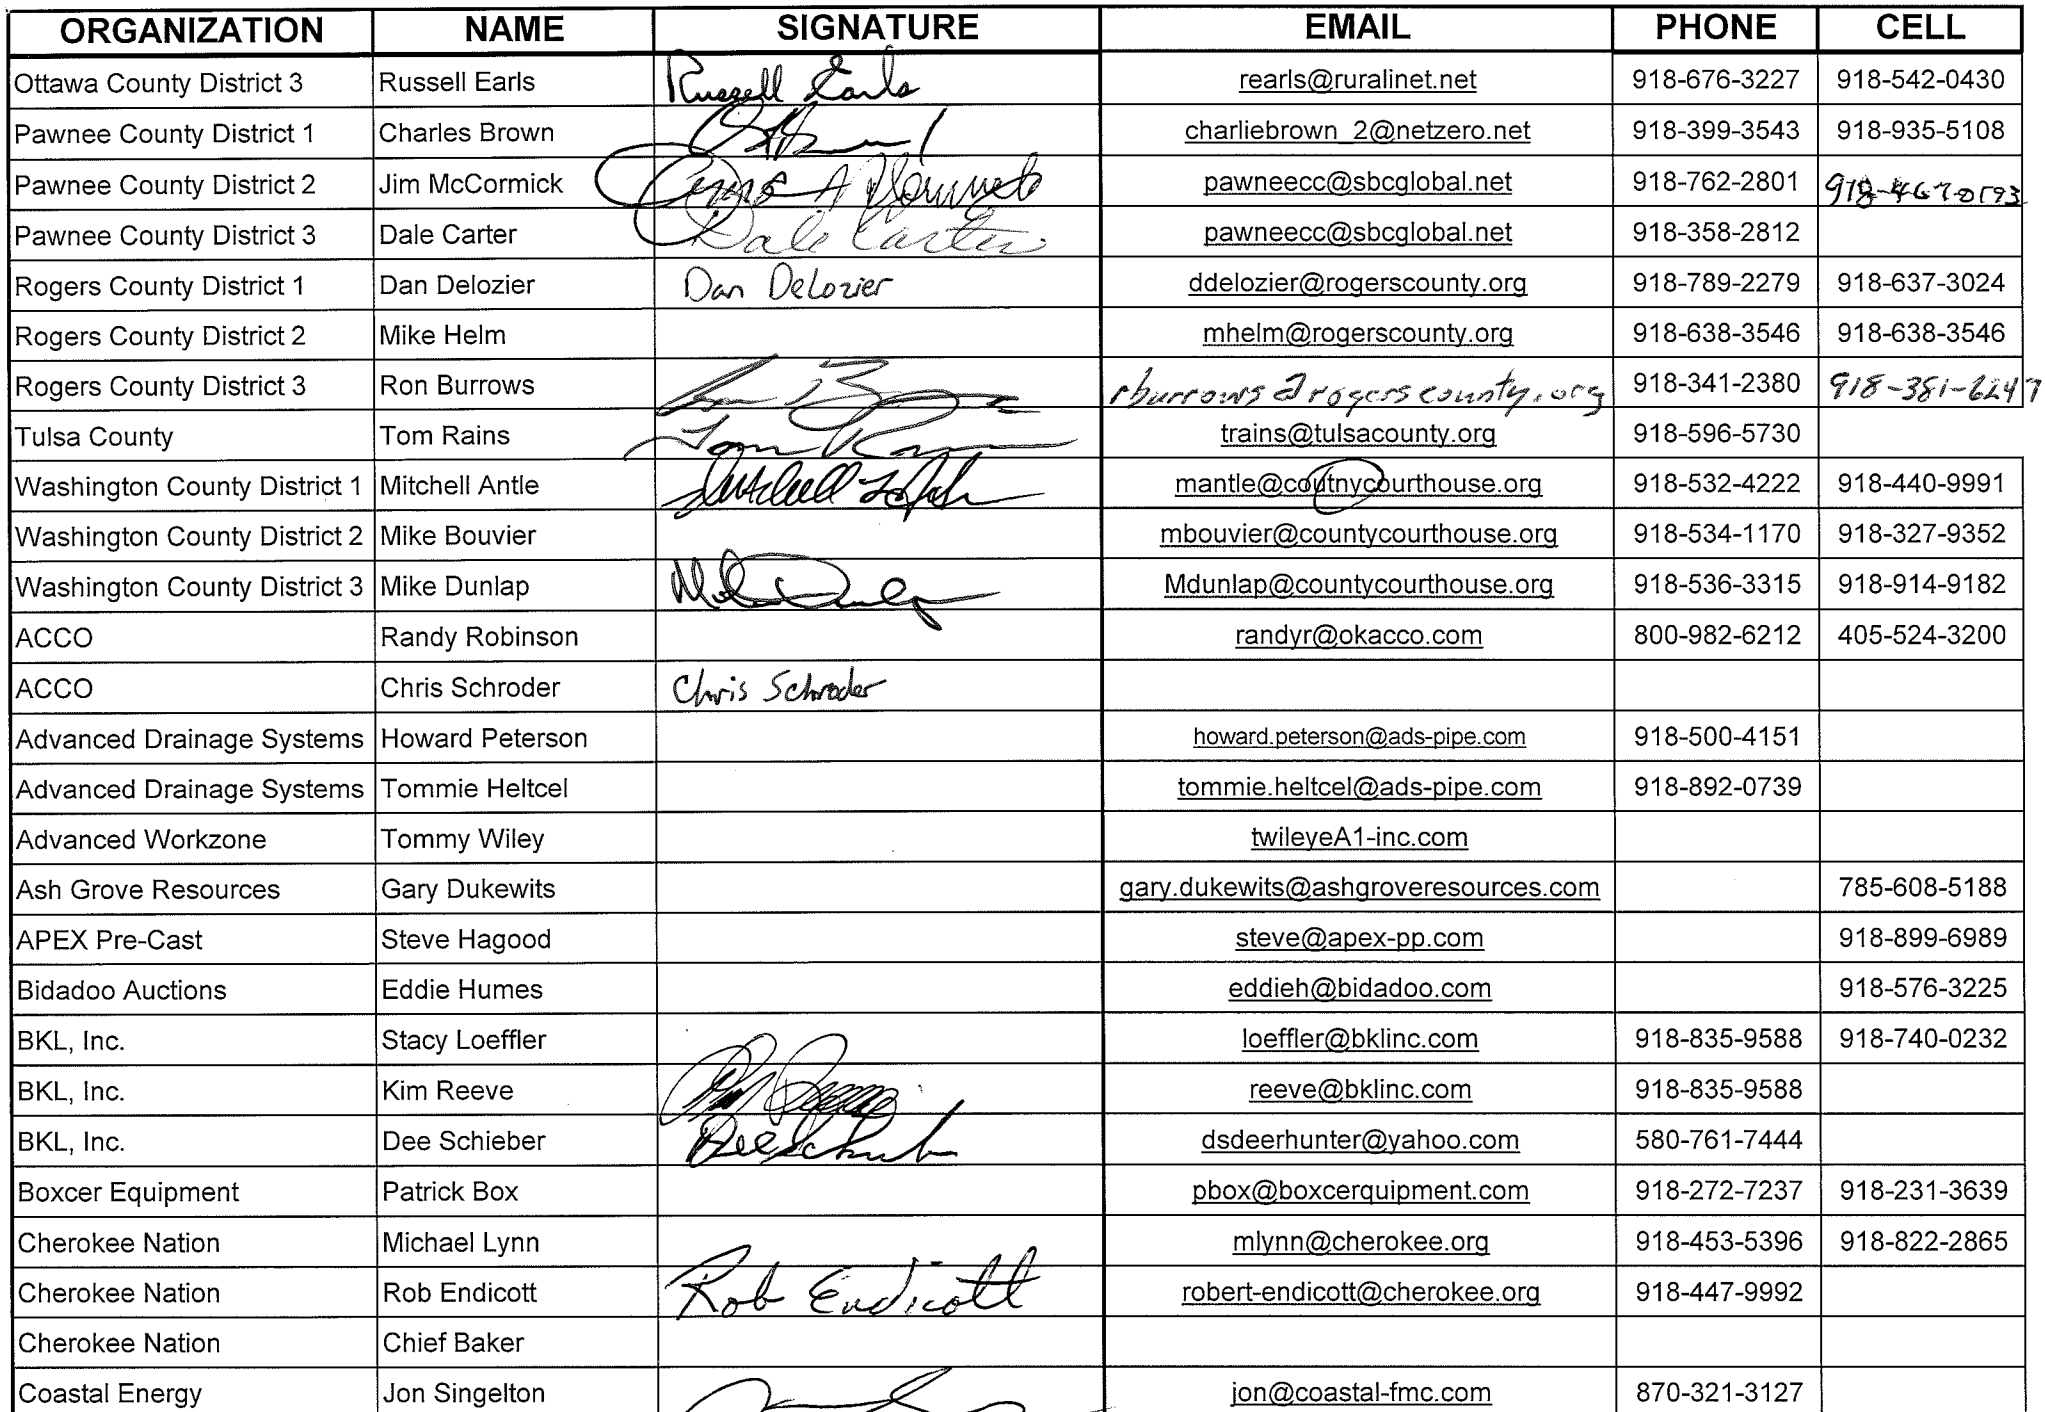 ORGANIZATION NAME SIGNATURE EMAIL PHONE CELL
Ottawa County District 3 Russell Earls Russell Earls rearls@ruralinet.net 918-676-3227 918-542-0430
Pawnee County District 1 Charles Brown charliebrown_2@netzero.net 918-399-3543 918-935-5108
Pawnee County District 2 Jim McCormick pawneecc@sbcglobal.net 918-762-2801
Pawnee County District 3 Dale Carter Dale Carter pawneecc@sbcglobal.net 918-358-2812
Rogers County District 1 Dan Delozier Dan Delozier ddelozier@rogerscounty.org 918-789-2279 918-637-3024
Rogers County District 2 Mike Helm mhelm@rogerscounty.org 918-638-3546 918-638-3546
Rogers County District 3 Ron Burrows rburrows@rogerscounty.org 918-341-2380 918-381-6247
Tulsa County Tom Rains Tom Rains trains@tulsacounty.org 918-596-5730
Washington County District 1 Mitchell Antle mantle@coutnycourthouse.org 918-532-4222 918-440-9991
Washington County District 2 Mike Bouvier mbouvier@countycourthouse.org 918-534-1170 918-327-9352
Washington County District 3 Mike Dunlap Mdunlap@countycourthouse.org 918-536-3315 918-914-9182
ACCO Randy Robinson randyr@okacco.com 800-982-6212 405-524-3200
ACCO Chris Schroder Chris Schroder
Advanced Drainage Systems Howard Peterson howard.peterson@ads-pipe.com 918-500-4151
Advanced Drainage Systems Tommie Heltcel tommie.heltcel@ads-pipe.com 918-892-0739
Advanced Workzone Tommy Wiley twileyeA1-inc.com
Ash Grove Resources Gary Dukewits gary.dukewits@ashgroveresources.com 785-608-5188
APEX Pre-Cast Steve Hagood steve@apex-pp.com 918-899-6989
Bidadoo Auctions Eddie Humes eddieh@bidadoo.com 918-576-3225
BKL, Inc. Stacy Loeffler loeffler@bklinc.com 918-835-9588 918-740-0232
BKL, Inc. Kim Reeve reeve@bklinc.com 918-835-9588
BKL, Inc. Dee Schieber dsdeerhunter@yahoo.com 580-761-7444
Boxcer Equipment Patrick Box pbox@boxcerquipment.com 918-272-7237 918-231-3639
Cherokee Nation Michael Lynn mlynn@cherokee.org 918-453-5396 918-822-2865
Cherokee Nation Rob Endicott Rob Endicott robert-endicott@cherokee.org 918-447-9992
Cherokee Nation Chief Baker
Coastal Energy Jon Singelton jon@coastal-fmc.com 870-321-3127